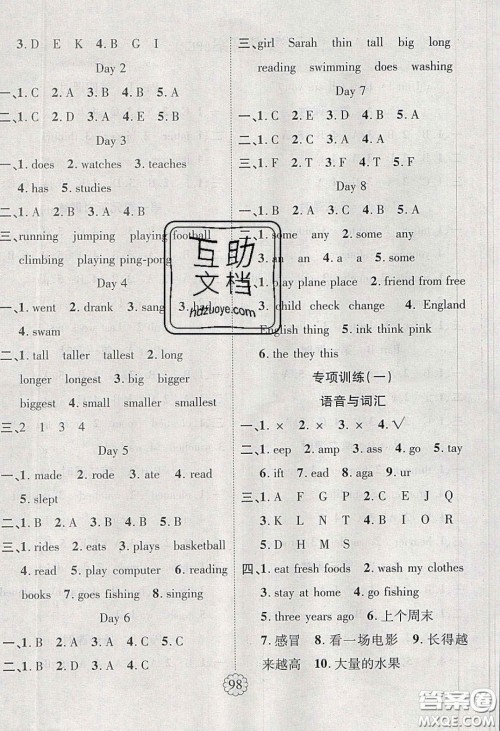 3. D E K 4. B G I
Day 2
一、1. C 2. A 3. B 4. B 5. A
二、1. C 2. A 3. B 4. A 5. B
Day 3
一、1. does 2. watches 3. teaches
4. has 5. studies
二、1. A 2. A 3. B 4. A 5. B
三、running jumping playing football
climbing playing ping-pong
Day 4
一、1. went 2. drank 3. sang
4. swam
二、1. tall taller tallest 2. long
longer longest 3. big bigger
biggest 4. small smaller smallest
三、2 1 3 4
Day 5
一、1. made 2. rode 3. ate 4. read
5. slept
二、1. B 2. A 3. B 4. A 5. B
三、1. rides 2. eats 3. plays basketball
4. read 5. play computer 6. reading
books 7. goes fishing 8. singing
Day 6
一、1. A 2. B 3. A 4. C 5. C
二、1. B 2. A 3. A 4. C 5. A
三、girl Sarah thin tall big long
reading swimming does washing
Day 7
一、1. A 2. C 3. A 4. B 5. A
二、1. C 2. E 3. D 4. B 5. A
三、1. F 2. T 3. T 4. F 5. F
Day 8
1. some any 2. any 3. some
4. any
1. play plane place 2. friend from free
3. child check change 4. England
English thing 5. ink think pink
6. the they this
专项训练(一)
语音与词汇
一、1. × 2. × 3. × 4. √
二、1. eep 2. amp 3. ass 4. at 5. tay
6. ift 7. ead 8. aga 9. ur
三、1. A F G P 2. C E J Q
3. K N L 4. B I N O R
5. D H M S
四、1. eat fresh foods 2. wash my clothes
3. stay at home 4. go fishing
5. three years ago 6. 上个周末
7. 感冒 8. 看一场电影 9. 长得越
来越高 10. 大量的水果
98
互助
文档
hdzuoye.com
答案圈
MXQE.COM